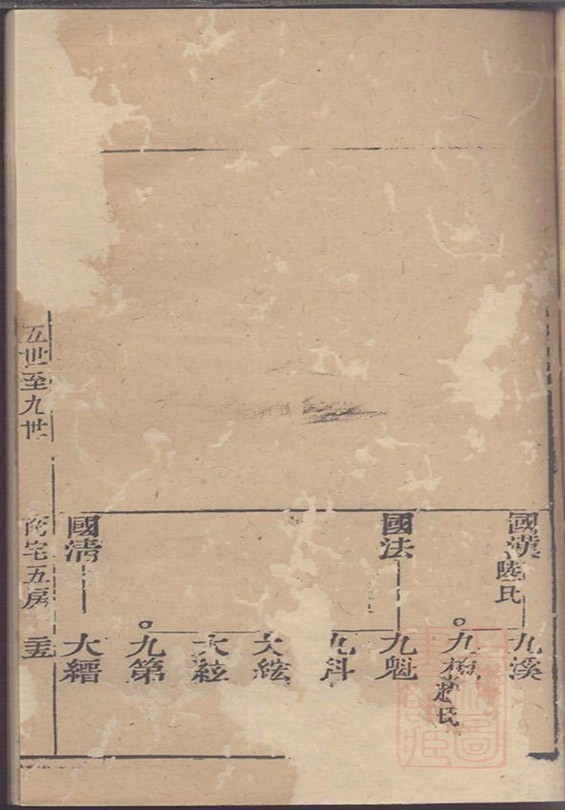 國漢
陸氏
九溪
九
趙氏
國法
九魁
九科
大絃
大紋
九第
國清
大縉
五世至九世
宅五房